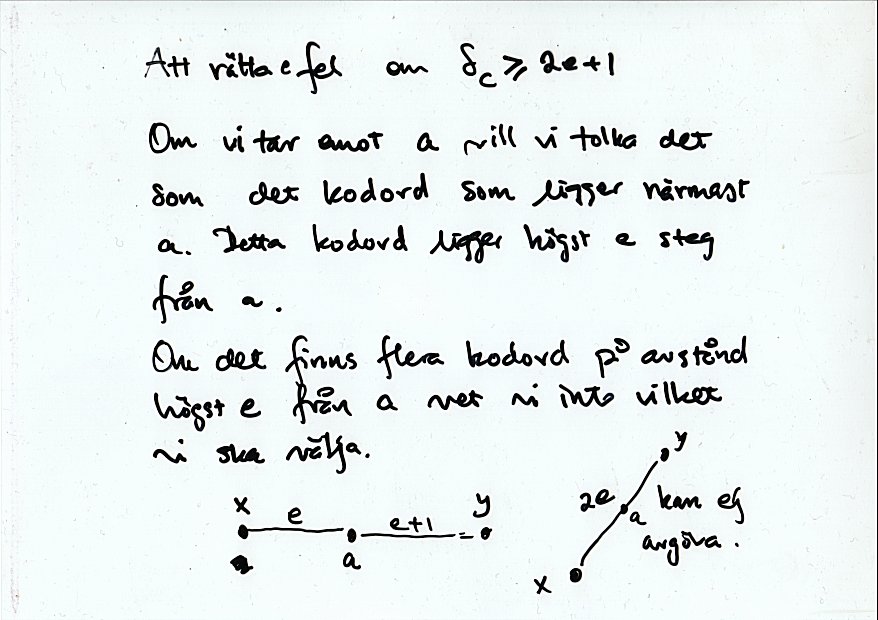 Att rätta e fel om δ_C ≥ 2e+1
Om vi tar emot a vill vi tolka det
som det kodord som ligger närmast
a. Detta kodord ligger högst e steg
från a.
Om det finns flera kodord på avstånd
högst e från a vet vi inte vilket
vi ska välja.
x e e+1 y
a
y
2e a kan ej
avgöra.
x